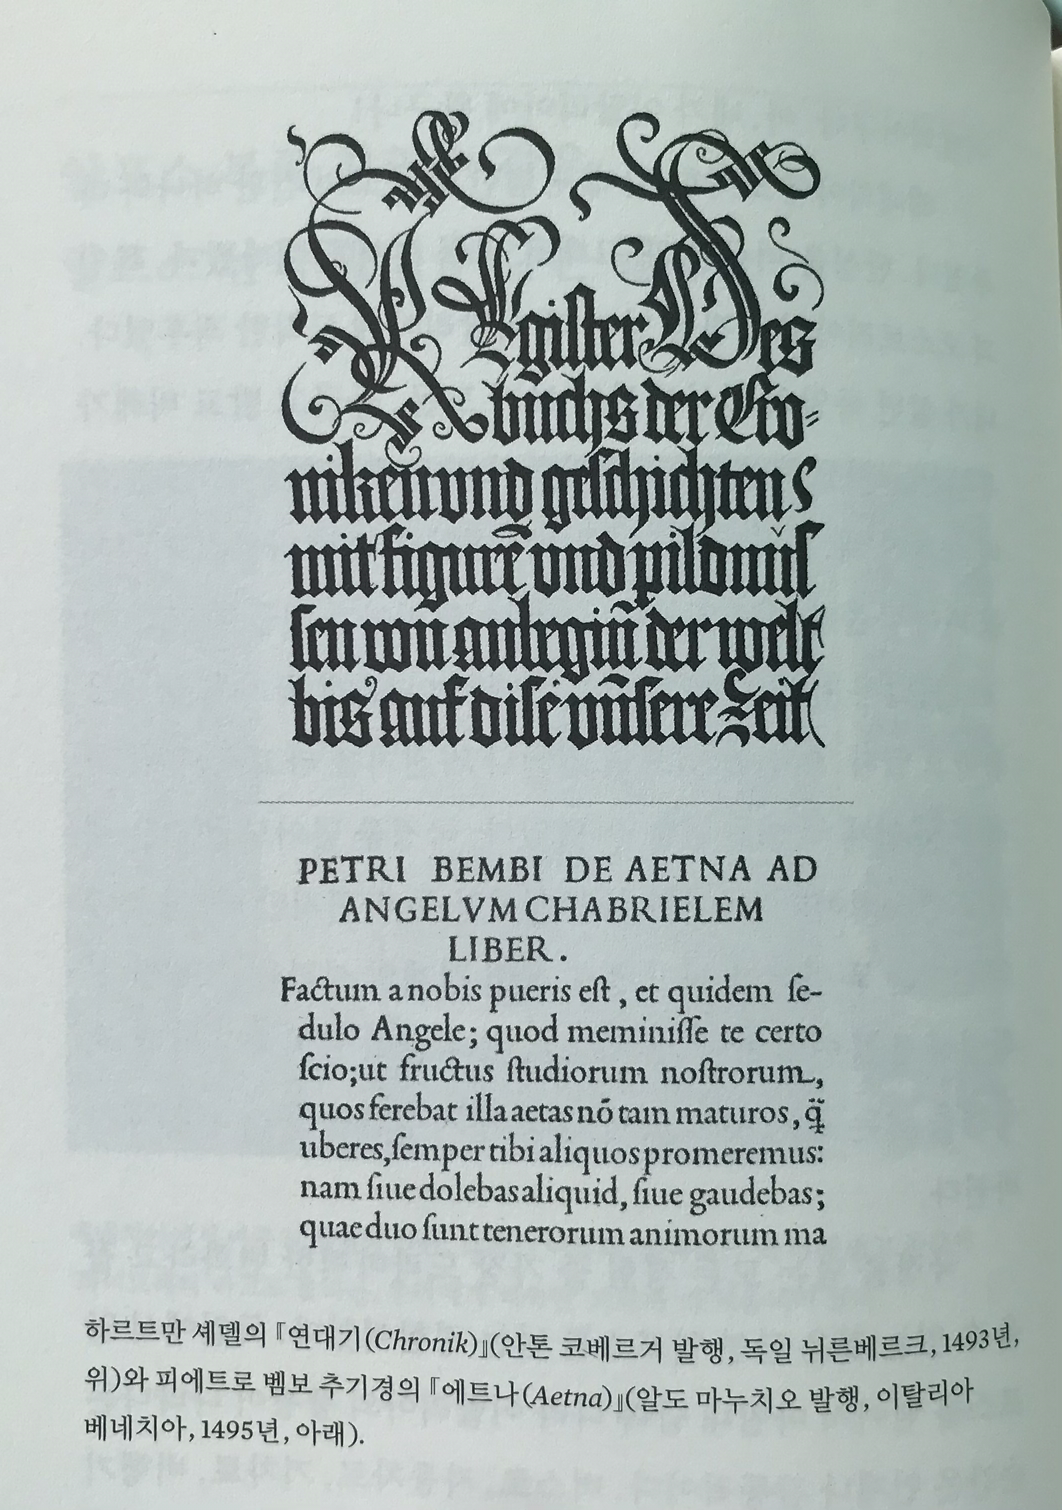 Register Des
buchs der Cro-
niken und geschichten
mit figurē und pildnus
sen von anbegiñ der welt
bis auf dise unsere Zeit
PETRI BEMBI DE AETNA AD
ANGELVM CHABRIELEM
LIBER.
Factum a nobis pueris eſt, et quidem ſe-
dulo Angele; quod meminiſſe te certo
ſcio; ut fructus ſtudiorum noſtrorum,
quos ferebat illa aetas nō tam maturos, q̄̈
uberes, ſemper tibi aliquos promeremus:
nam ſiue dolebas aliquid, ſiue gaudebas;
quae duo ſunt tenerorum animorum ma
하르트만 셰델의 『연대기(Chronik)』(안톤 코베르거 발행, 독일 뉘른베르크, 1493년,
위)와 피에트로 벰보 추기경의 『에트나(Aetna)』(알도 마누치오 발행, 이탈리아
베네치아, 1495년, 아래).